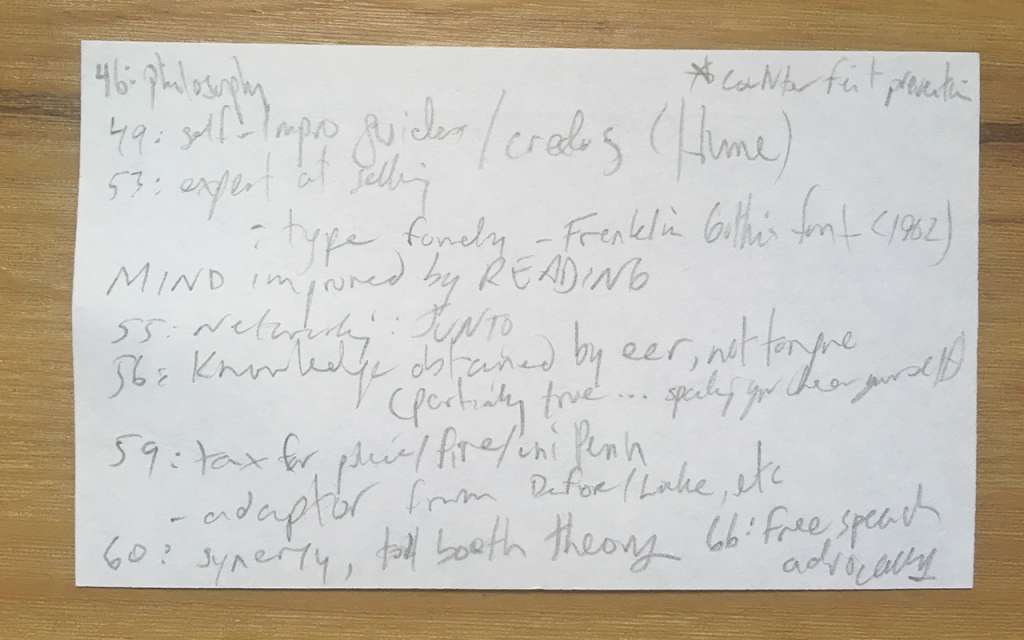 46: philosophy
* counterfeit prevention
49: self-impro guides/credos (Hume)
53: expert at selling
: type foundry - Franklin Gothic font (1902)
MIND improved by READING
55: Networking: JUNTO
56: Knowledge obtained by ear, not tongue
(partially true... speaking you hear yourself)
59: tax for police/fire/uni Penn
- adaptor from Defoe/Locke, etc
60: synergy, toll booth theory
66: Free speech
advocacy